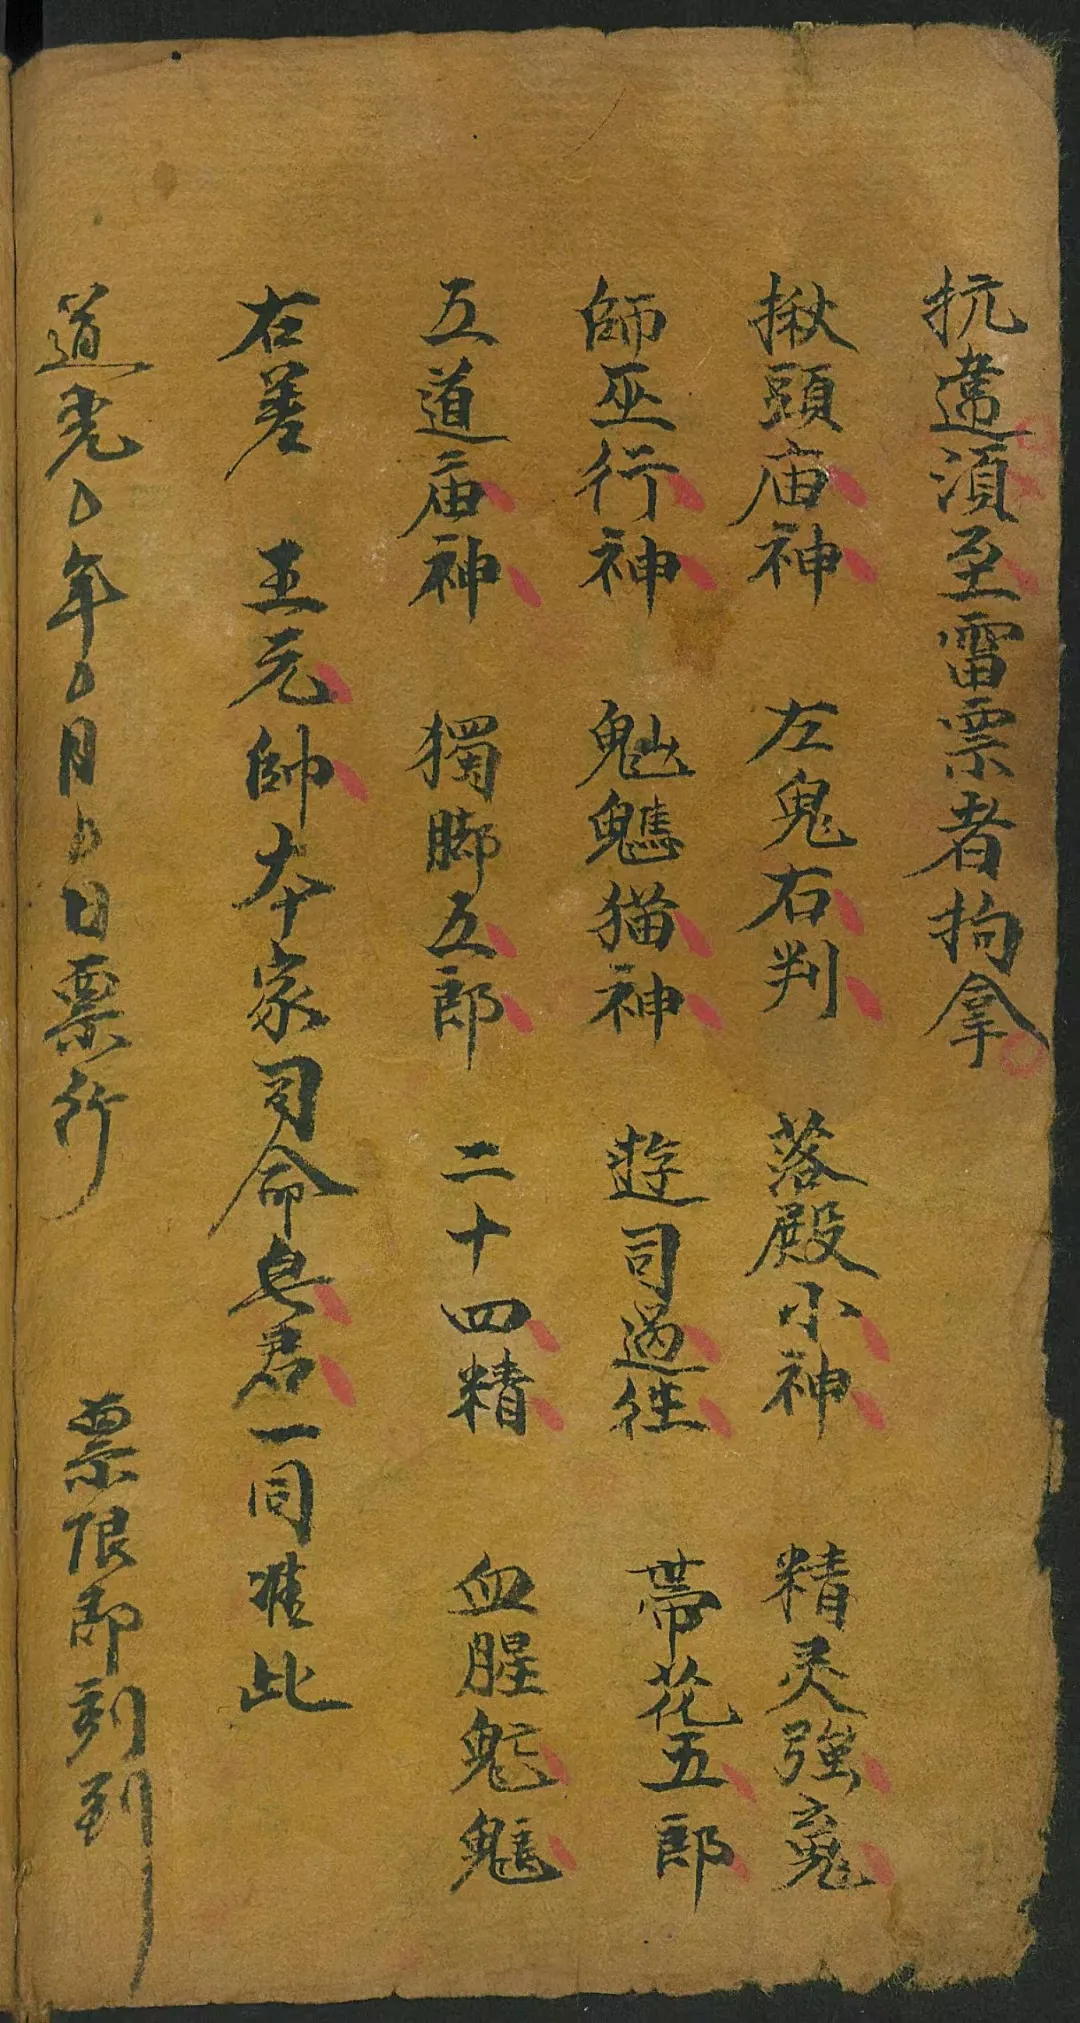 抗違須至雷票者拘拿
揪頭庙神 左鬼右判 落殿小神 精灵強
師巫行神 猫神 遊司過往 帶花五郎
五道庙神 獨脚五郎 二十四精 血腥
右差 王元帥 本家司命皂君一同准此
道光 年 月 日票行 票限即刻到